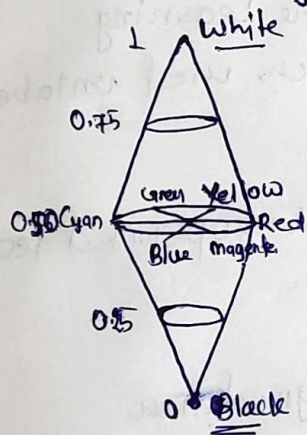 1 White
0.75
Green Yellow
0.50 Cyan Red
Blue Magenta
0.25
0 Black